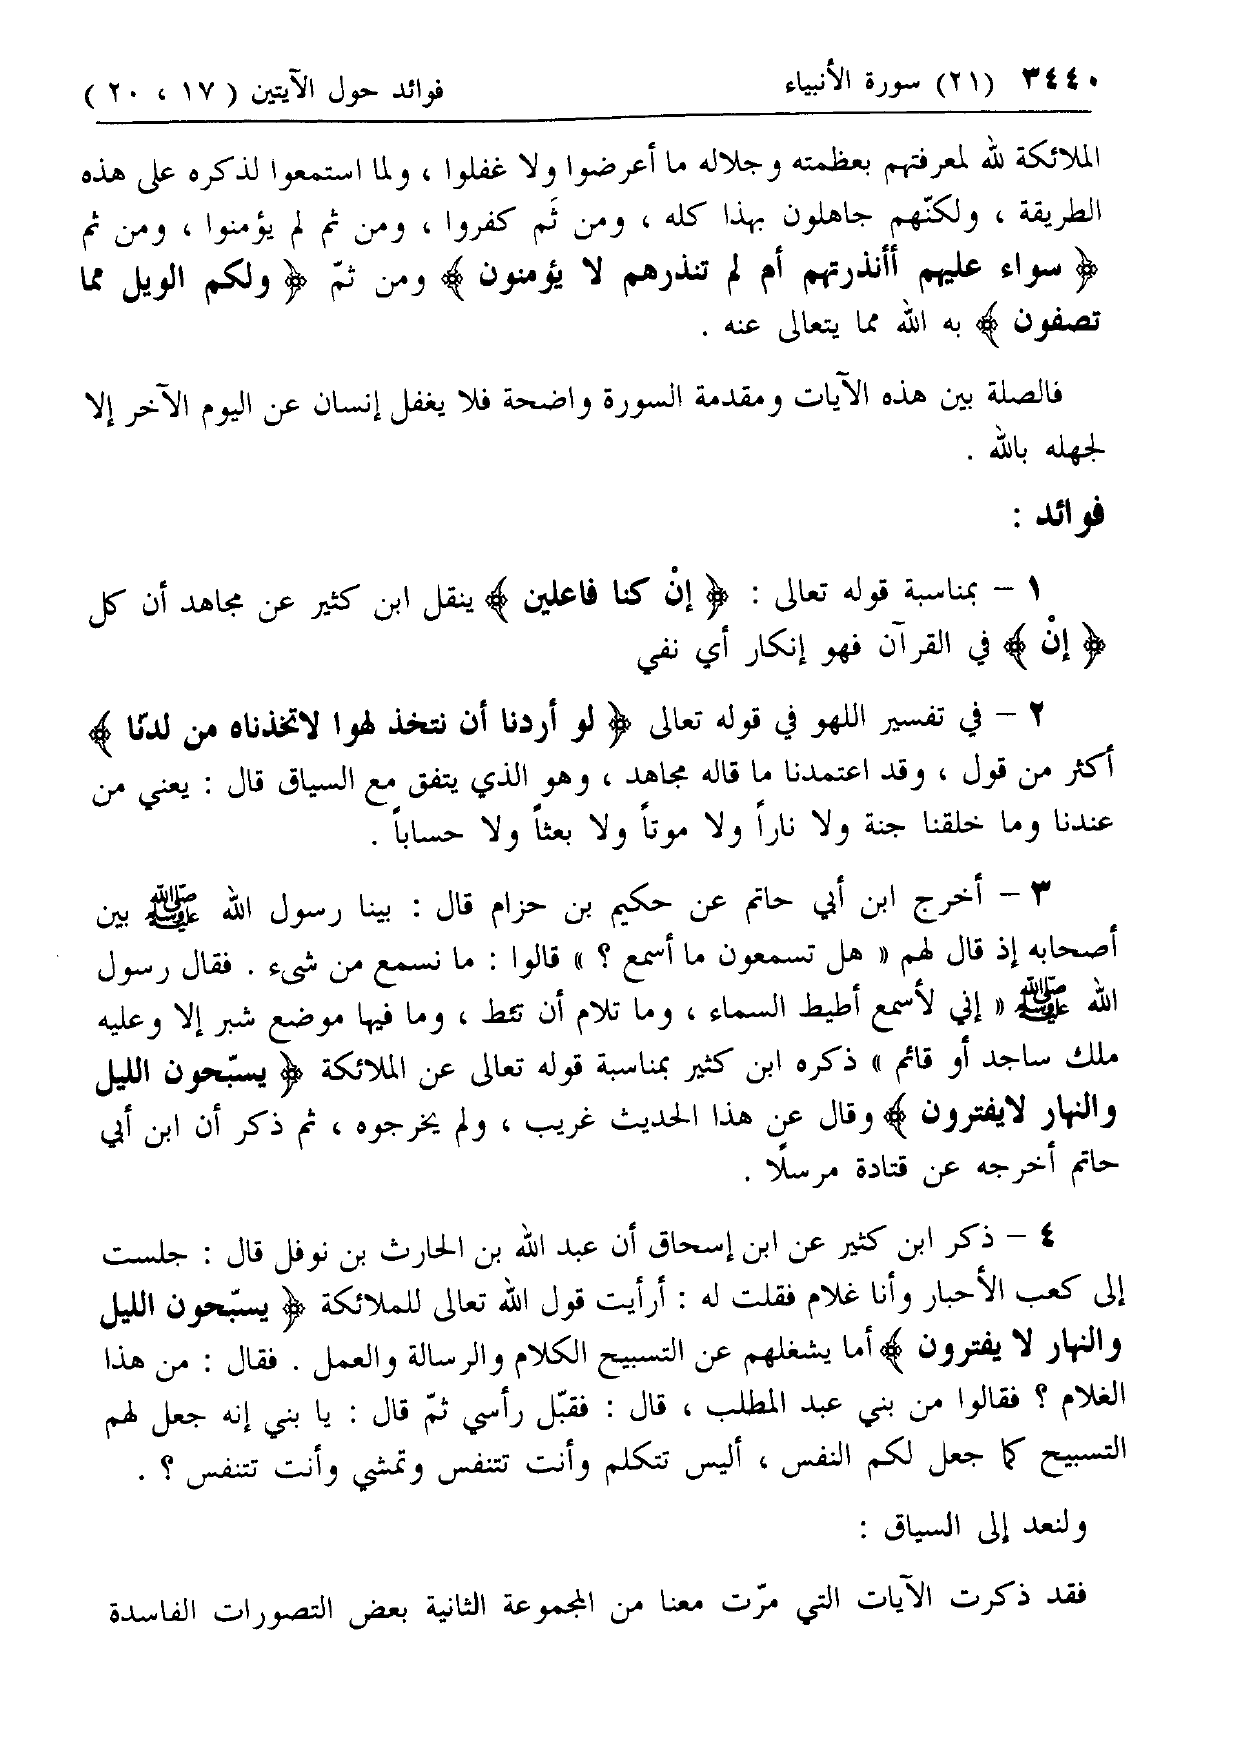 ٣٤٤٠ (٢١) سورة الأنبياء فوائد حول الآيتين ( ١٧ ، ٢٠ )
الملائكة لله لمعرفتهم بعظمته وجلاله ما أعرضوا ولا غفلوا ، ولما استمعوا لذكره على هذه
الطريقة ، ولكنّهم جاهلون بهذا كله ، ومن ثَم كفروا ، ومن ثم لم يؤمنوا ، ومن ثم
﴿ سواء عليهم أأنذرتهم أم لم تنذرهم لا يؤمنون ﴾ ومن ثمّ ﴿ ولكم الويل مما
تصفون ﴾ به الله مما يتعالى عنه .
فالصلة بين هذه الآيات ومقدمة السورة واضحة فلا يغفل إنسان عن اليوم الآخر إلا
لجهله بالله .
فوائد :
١ – بمناسبة قوله تعالى : ﴿ إنْ كنا فاعلين ﴾ ينقل ابن كثير عن مجاهد أن كل
﴿ إنْ ﴾ في القرآن فهو إنكار أي نفي
٢ – في تفسير اللهو في قوله تعالى ﴿ لو أردنا أن نتخذ لهوا لاتخذناه من لدنّا ﴾
أكثر من قول ، وقد اعتمدنا ما قاله مجاهد ، وهو الذي يتفق مع السياق قال : يعني من
عندنا وما خلقنا جنة ولا ناراً ولا موتاً ولا بعثاً ولا حساباً .
٣ – أخرج ابن أبي حاتم عن حكيم بن حزام قال : بينا رسول الله ﷺ بين
أصحابه إذ قال لهم « هل تسمعون ما أسمع ؟ » قالوا : ما نسمع من شىء . فقال رسول
الله ﷺ « إني لأسمع أطيط السماء ، وما تلام أن تئط ، وما فيها موضع شبر إلا وعليه
ملك ساجد أو قائم » ذكره ابن كثير بمناسبة قوله تعالى عن الملائكة ﴿ يسبّحون الليل
والنهار لايفترون ﴾ وقال عن هذا الحديث غريب ، ولم يخرجوه ، ثم ذكر أن ابن أبي
حاتم أخرجه عن قتادة مرسلًا .
٤ – ذكر ابن كثير عن ابن إسحاق أن عبد الله بن الحارث بن نوفل قال : جلست
إلى كعب الأحبار وأنا غلام فقلت له : أرأيت قول الله تعالى للملائكة ﴿ يسبّحون الليل
والنهار لا يفترون ﴾ أما يشغلهم عن التسبيح الكلام والرسالة والعمل . فقال : من هذا
الغلام ؟ فقالوا من بني عبد المطلب ، قال : فقبّل رأسي ثمّ قال : يا بني إنه جعل لهم
التسبيح كما جعل لكم النفس ، أليس تتكلم وأنت تتنفس وتمشي وأنت تتنفس ؟ .
ولنعد إلى السياق :
فقد ذكرت الآيات التي مرّت معنا من المجموعة الثانية بعض التصورات الفاسدة